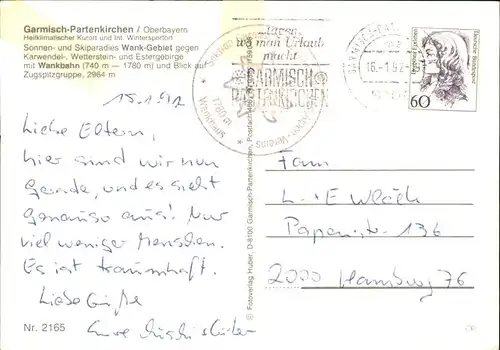 Garmisch-Partenkirchen / Oberbayern
Heilklimatischer Kurort und Int. Wintersportort
Sonnen- und Skiparadies Wank-Gebiet gegen
Karwendel-, Wetterstein- und Estergebirge
mit Wankbahn (740 m — 1780 m) und Blick auf
Zugspitzgruppe, 2964 m
15.1.92
Liebe Eltern,
hier sind wir nun
gerade, und es sieht
genauso aus! Nur
viel weniger Menschen.
Es ist traumhaft.
Liebe Grüße
Eure
Nr. 2165
© Fotoverlag Huber, D-8100 Garmisch-Partenkirchen
wo man Urlaub
macht
GARMISCH
PARTENKIRCHEN
1780 m
Wankhaus
16.-1.92
Deutsche Bundespost
60
Fam
L. + E
Papenstr. 136
2000 Hamburg 76